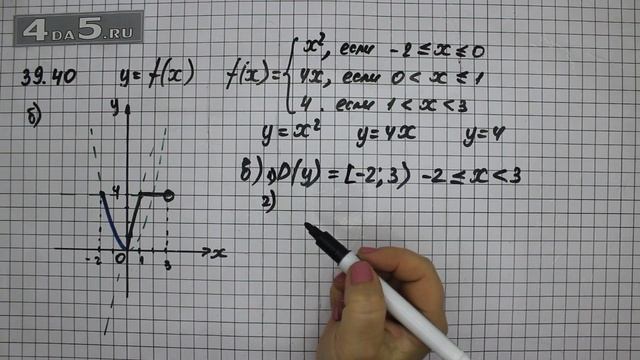 4DA5.RU
39.40 y = f(x) f(x) = { x², если -2 ≤ x ≤ 0
4x, если 0 < x ≤ 1
4. если 1 < x < 3
б) y = x² y = 4x y = 4
y
в) 1) D(y) = [-2; 3) -2 ≤ x < 3
2)
4
-2 0 1 3 x